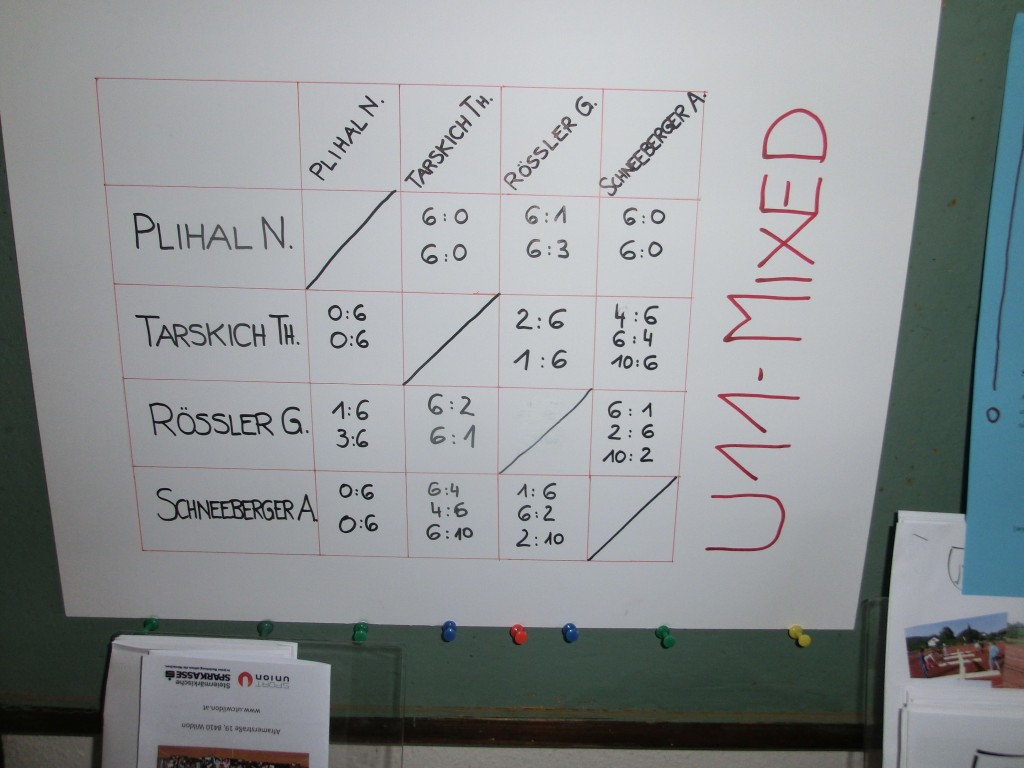 PLIHAL N. TARSKICH TH. RÖSSLER G. SCHNEEBERGER A.
PLIHAL N. 6:0 6:1 6:0
6:0 6:3 6:0
TARSKICH TH. 0:6 2:6 4:6
0:6 1:6 6:4
10:6
RÖSSLER G. 1:6 6:2 6:1
3:6 6:1 2:6
10:2
SCHNEEBERGER A. 0:6 6:4 1:6
0:6 4:6 6:2
6:10 2:10
U11-MIXED
SPORT
union
Steiermärkische
SPARKASSE
www.utcwildon.at
Aframerstraße 19, 8410 Wildon